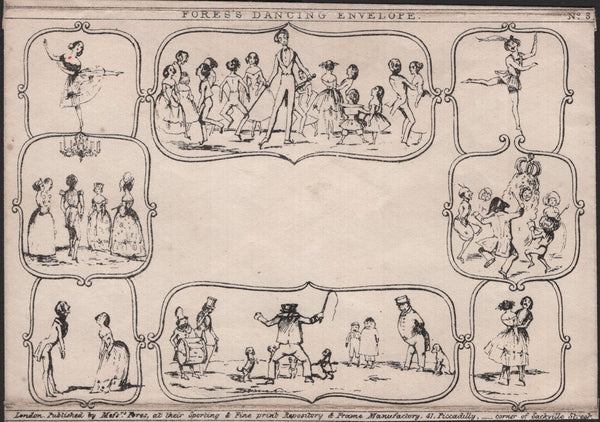 FORES'S DANCING ENVELOPE.
No. 3
London. Published by Messrs. Fores, at their Sporting & Fine print Repository & Frame Manufactory, 41, Piccadilly, — corner of Sackville Street.